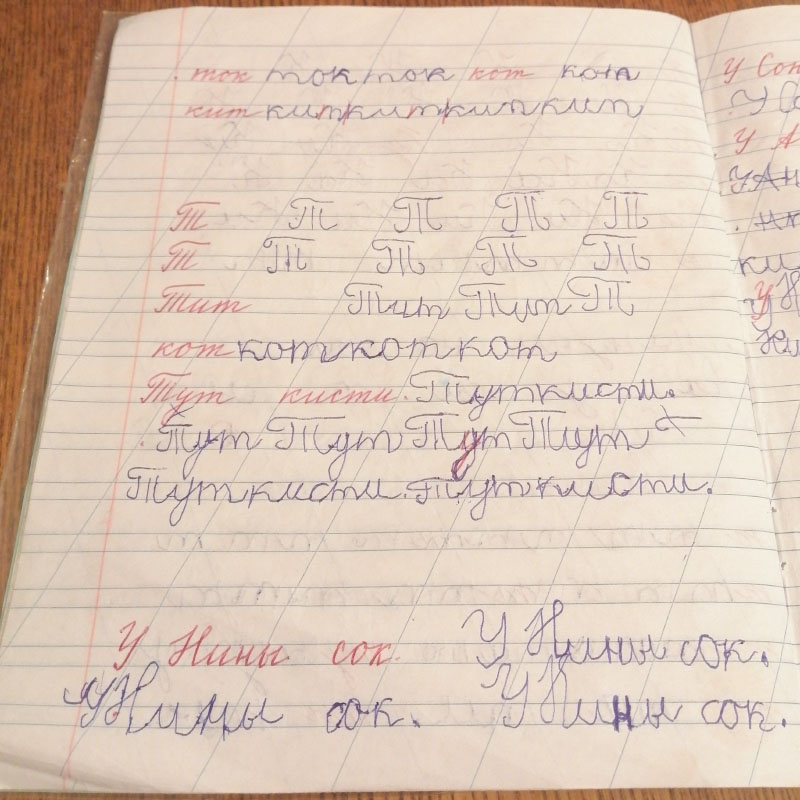 ток ток ток кот кот
кит кит кит кит кит
Т Т Т Т Т
Т Т Т Т Т
Тит Тит Тит Т
кот кот кот кот
Тут кисти. Тут кисти.
Тут Тут Тут Тут
Тут кисти. Тут кисти.
У Нины сок. У Нины сок.
У Нины сок. У Нины сок.
У
У
У